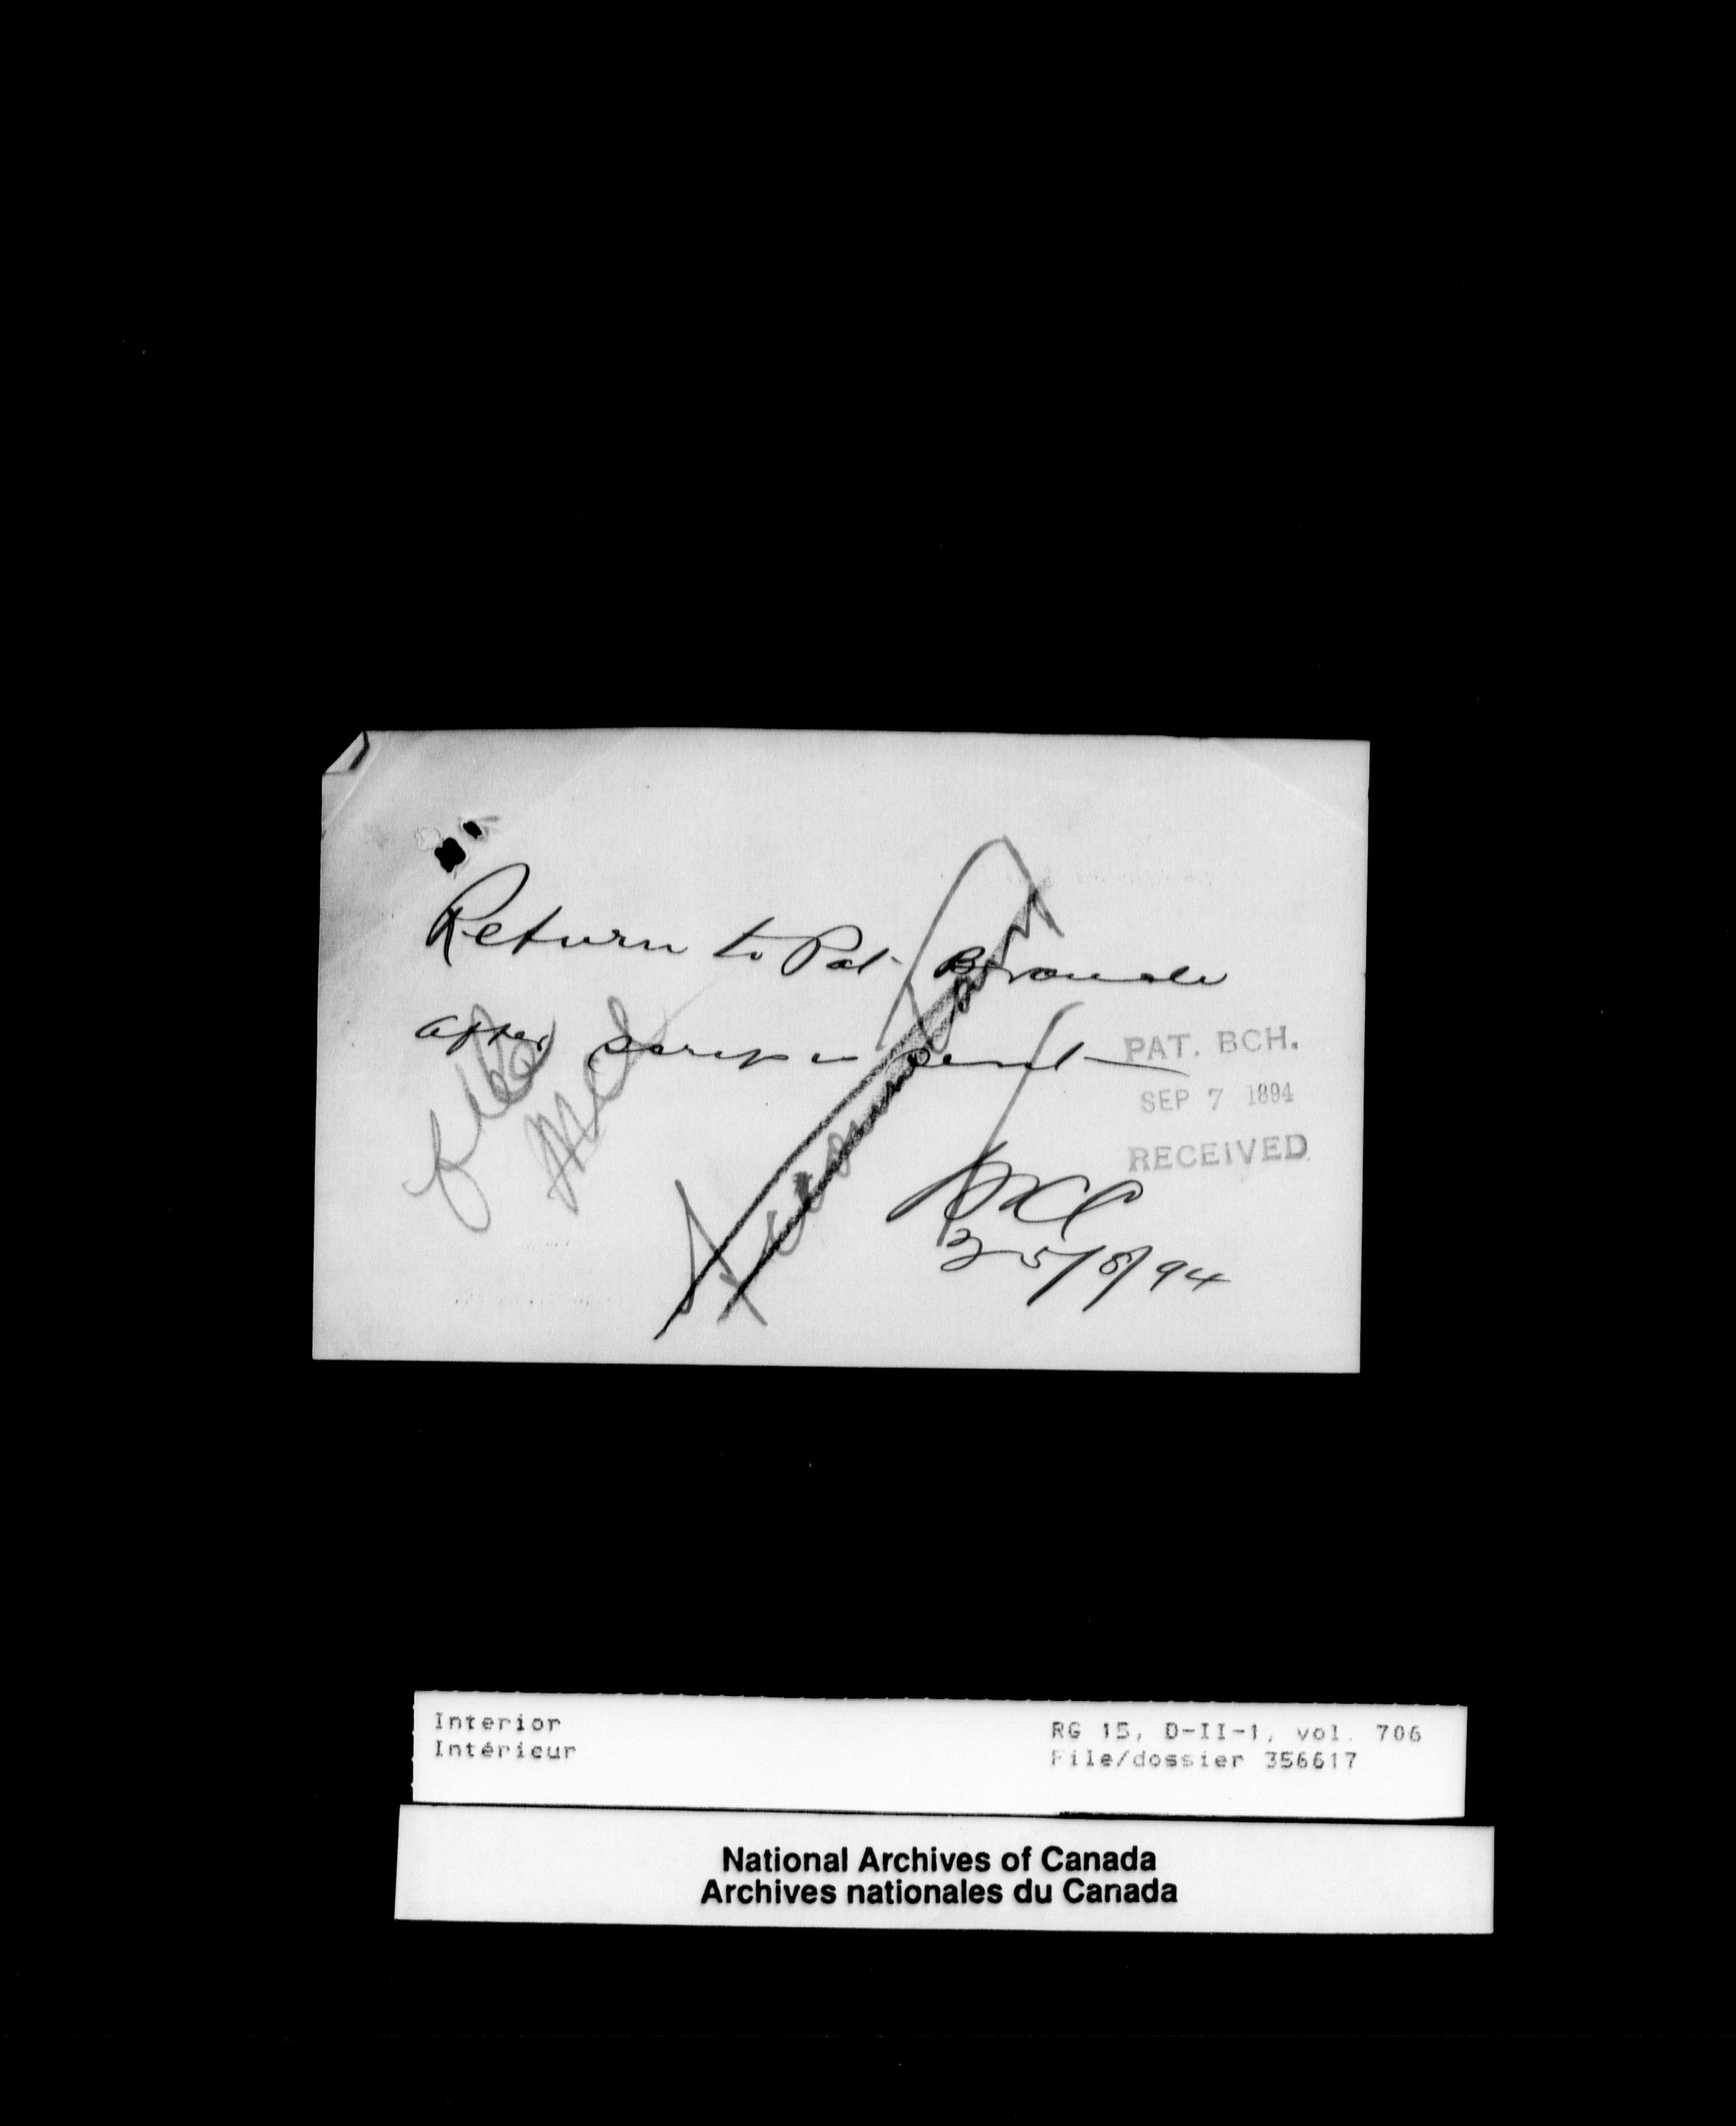 Return to Pat. Branch
after scrip is sent
PAT. BCH.
SEP 7 1894
RECEIVED
25/8/94
Interior
Intérieur
RG 15, D-II-1, vol. 706
File/dossier 356617
National Archives of Canada
Archives nationales du Canada